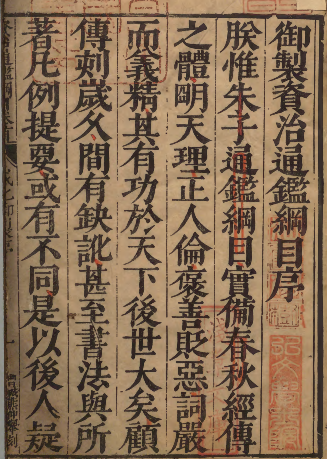 御製資治通鑑綱目序
朕惟朱子通鑑綱目實備春秋經傳
之體明天理正人倫褒善貶惡詞嚴
而義精其有功於天下後世大矣顧
傳刻歲久間有缺訛甚至書法與所
著凡例提要或有不同是以後人疑